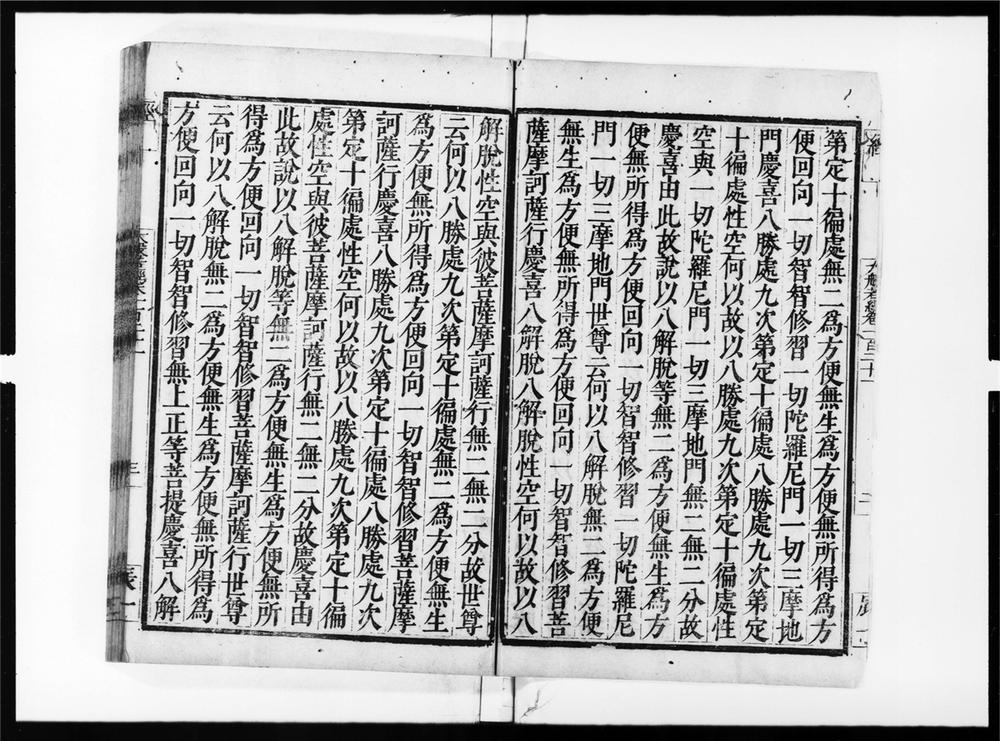 第定十徧處無二爲方便無生爲方便無所得爲方
便回向一切智智修習一切陀羅尼門一切三摩地
門慶喜八勝處九次第定十徧處八勝處九次第定
十徧處性空何以故以八勝處九次第定十徧處性
空與一切陀羅尼門一切三摩地門無二無二分故
慶喜由此故說以八解脫等無二爲方便無生爲方
便無所得爲方便回向一切智智修習一切陀羅尼
門一切三摩地門世尊云何以八解脫無二爲方便
無生爲方便無所得爲方便回向一切智智修習菩
薩摩訶薩行慶喜八解脫八解脫性空何以故以八
解脫性空與彼菩薩摩訶薩行無二無二分故世尊
云何以八勝處九次第定十徧處無二爲方便無生
爲方便無所得爲方便回向一切智智修習菩薩摩
訶薩行慶喜八勝處九次第定十徧處八勝處九次
第定十徧處性空何以故以八勝處九次第定十徧
處性空與彼菩薩摩訶薩行無二無二分故慶喜由
此故說以八解脫等無二爲方便無生爲方便無所
得爲方便回向一切智智修習菩薩摩訶薩行世尊
云何以八解脫無二爲方便無生爲方便無所得爲
方便回向一切智智修習無上正等菩提慶喜八解